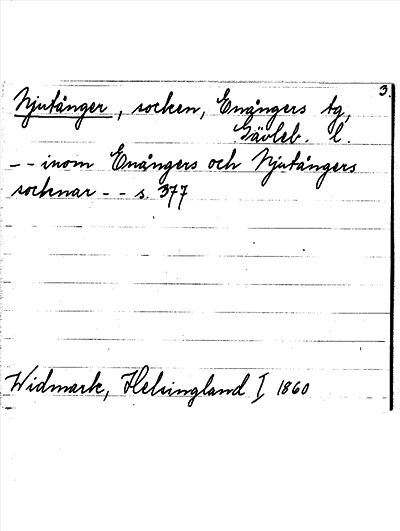 3.
Njutånger, socken, Enångers tg,
Gävleb. l.
-- inom Enångers och Njutångers
socknar -- s. 377
Widmark, Helsingland I 1860